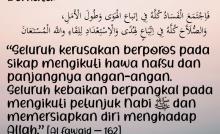 فَاجْتَمَعَ الْفَسَادُ كُلُّهُ فِي اتِّبَاعِ الْهَوَى وَطُولِ الْأَمَلِ،
وَالصَّلَاحُ كُلُّهُ فِي اتِّبَاعِ الْهُدَى وَالِاسْتِعْدَادِ لِلِقَاءِ وَاللهُ الْمُسْتَعَانُ
“Seluruh kerusakan berporos pada
sikap mengikuti hawa nafsu dan
panjangnya angan-angan.
Seluruh kebaikan berpangkal pada
mengikuti petunjuk Nabi ﷺ dan
memersiapkan diri menghadap
Allah.” (Al Fawaid – 162)